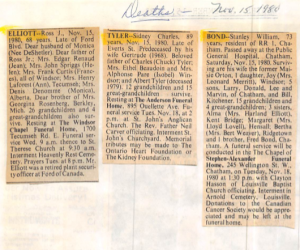 Deaths:- Nov. 15, 1980
ELLIOTT—Ross J., Nov. 15,
1980, 68 years. Late of Ford
Blvd. Dear husband of Monica
(Nee DeSherlier). Dear father of
Ross Jr.; Mrs. Edgar Randal
(Jean); Mrs. John Spriggs (Honor); Mrs. Frank Curtis (Frances), all of Windsor; Mrs. Henry
Lafrern (Ann), Tecumseh; Mrs.
Denis Desmond (Monica),
Ottawa. Dear brother of Mrs.
Georgina Roseberg, Berkley,
Mich. 26 grandchildren and 4
great-grandchildren also survive. Resting at The Windsor
Chapel Funeral Home, 1700
Tecumseh Rd. E. Funeral service Wed. 9 a.m. thence to St.
Therese Church at 9:30 a.m.
Interment Heavenly Rest Cemetery. Prayers Tues. at 8 p.m. Mr.
Elliott was a retired plant security officer at Ford of Canada.
TYLER—Sidney Charles, 89
years, Nov. 15, 1980. Late of
Everts St. Predeceased by his
wife Gertrude (1969). Dear
father of Charles (Chuck) Tyler;
Mrs. Ethel Beaudoin and Mrs.
Alphonse Pare (Isobel) Windsor; and Albert Tyler (deceased
1979); 12 grandchildren and 15
great-grandchildren survive.
Resting at the Anderson Funeral
Home, 895 Ouellette Ave. Funeral service Tues. Nov. 18, at 2
p.m. at St. John's Anglican
Church. The Rev. Father Neil
Carver officiating. Interment St.
John's Churchyard. Memorial
tributes may be made to The
Ontario Heart Foundation or
The Kidney Foundation.
BOND—Stanley William, 73
years, resident of RR 1, Chatham. Passed away at the Public
General Hospital, Chatham,
Saturday, Nov. 15, 1980. Survived by his wife the former Marion Orton, 1 daughter, Joy (Mrs.
Leonard Merritt), Windsor; 5
sons, Larry, Donald, Lee and
Marvin, of Chatham, and Bill,
Kitchener; 15 grandchildren and
4 great-grandchildren; 3 sisters,
Alma (Mrs. Harland Elliott),
Kent Bridge; Margaret (Mrs.
Lloyd Lovell), Hornell, Bertha
(Mrs. Bert Weese), Ridgetown
and 1 brother, Fred Bond, Chatham. A funeral service will be
conducted in the Chapel of
Stephen-Alexander Funeral
Home, 245 Wellington St. W.,
Chatham, on Tuesday, Nov. 18,
1980 at 1:30 p.m. with Clayton
Hasson of Louisville Baptist
Church officiating. Interment in
Arnold Cemetery, Louisville.
Donations to the Canadian
Cancer Society would be appreciated and may be left at the
funeral home.